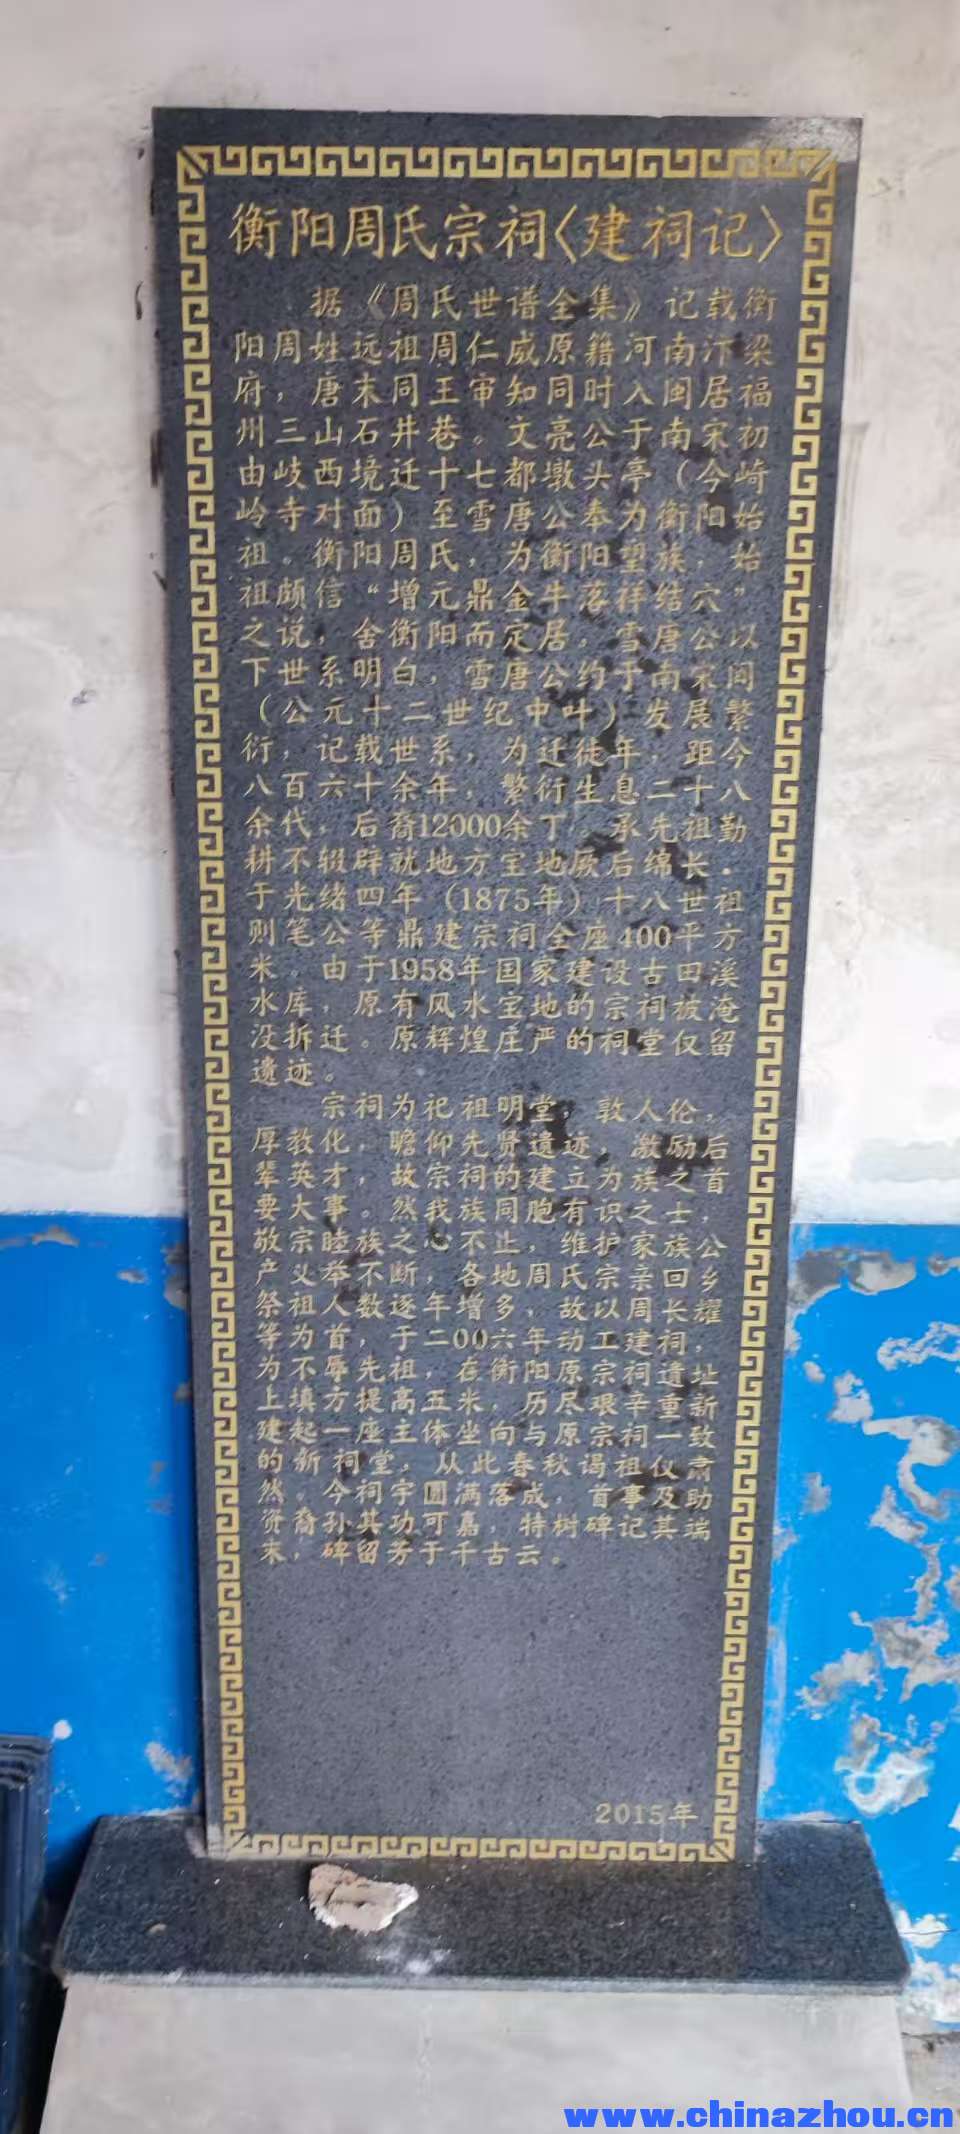 衡阳周氏宗祠〈建祠记〉
据《周氏世谱全集》记载衡
阳周姓远祖周仁威原籍河南汴梁
府，唐末同王审知同时入闽居福
州三山石井巷。文亮公于南宋初
由岐西境迁十七都墩头亭（今崎
岭寺对面）至雪唐公奉为衡阳始
祖。衡阳周氏，为衡阳望族，始
祖颇信“增元鼎金牛落祥结穴”
之说，舍衡阳而定居。雪唐公以
下世系明白，雪唐公约于南宋间
（公元十二世纪中叶）发展繁
衍，记载世系，为迁徒年，距今
八百六十余年，繁衍生息二十八
余代，后裔12000余丁。承先祖勤
耕不辍辟就地方宝地厥后绵长.
于光绪四年（1875年）十八世祖
则笔公等鼎建宗祠全座400平方
米。由于1958年国家建设古田溪
水库，原有风水宝地的宗祠被淹
没拆迁。原辉煌庄严的祠堂仅留
遗迹。
宗祠为祀祖明堂，敦人伦，
厚教化，瞻仰先贤遗迹，激励后
辈英才，故宗祠的建立为族之首
要大事。然我族同胞有识之士，
敬宗睦族之心不止，维护家族公
产义举不断，各地周氏宗亲回乡
祭祖人数逐年增多，故以周长耀
等为首，于二00六年动工建祠，
为不辱先祖，在衡阳原宗祠遗址
上填方提高五米，历尽艰辛重新
建起一座主体坐向与原宗祠一致
的新祠堂，从此春秋谒祖仪肃
然。今祠宇圆满落成，首事及助
资裔孙其功可嘉，特树碑记其端
末，碑留芳于千古云。
2015年
www.chinazhou.cn